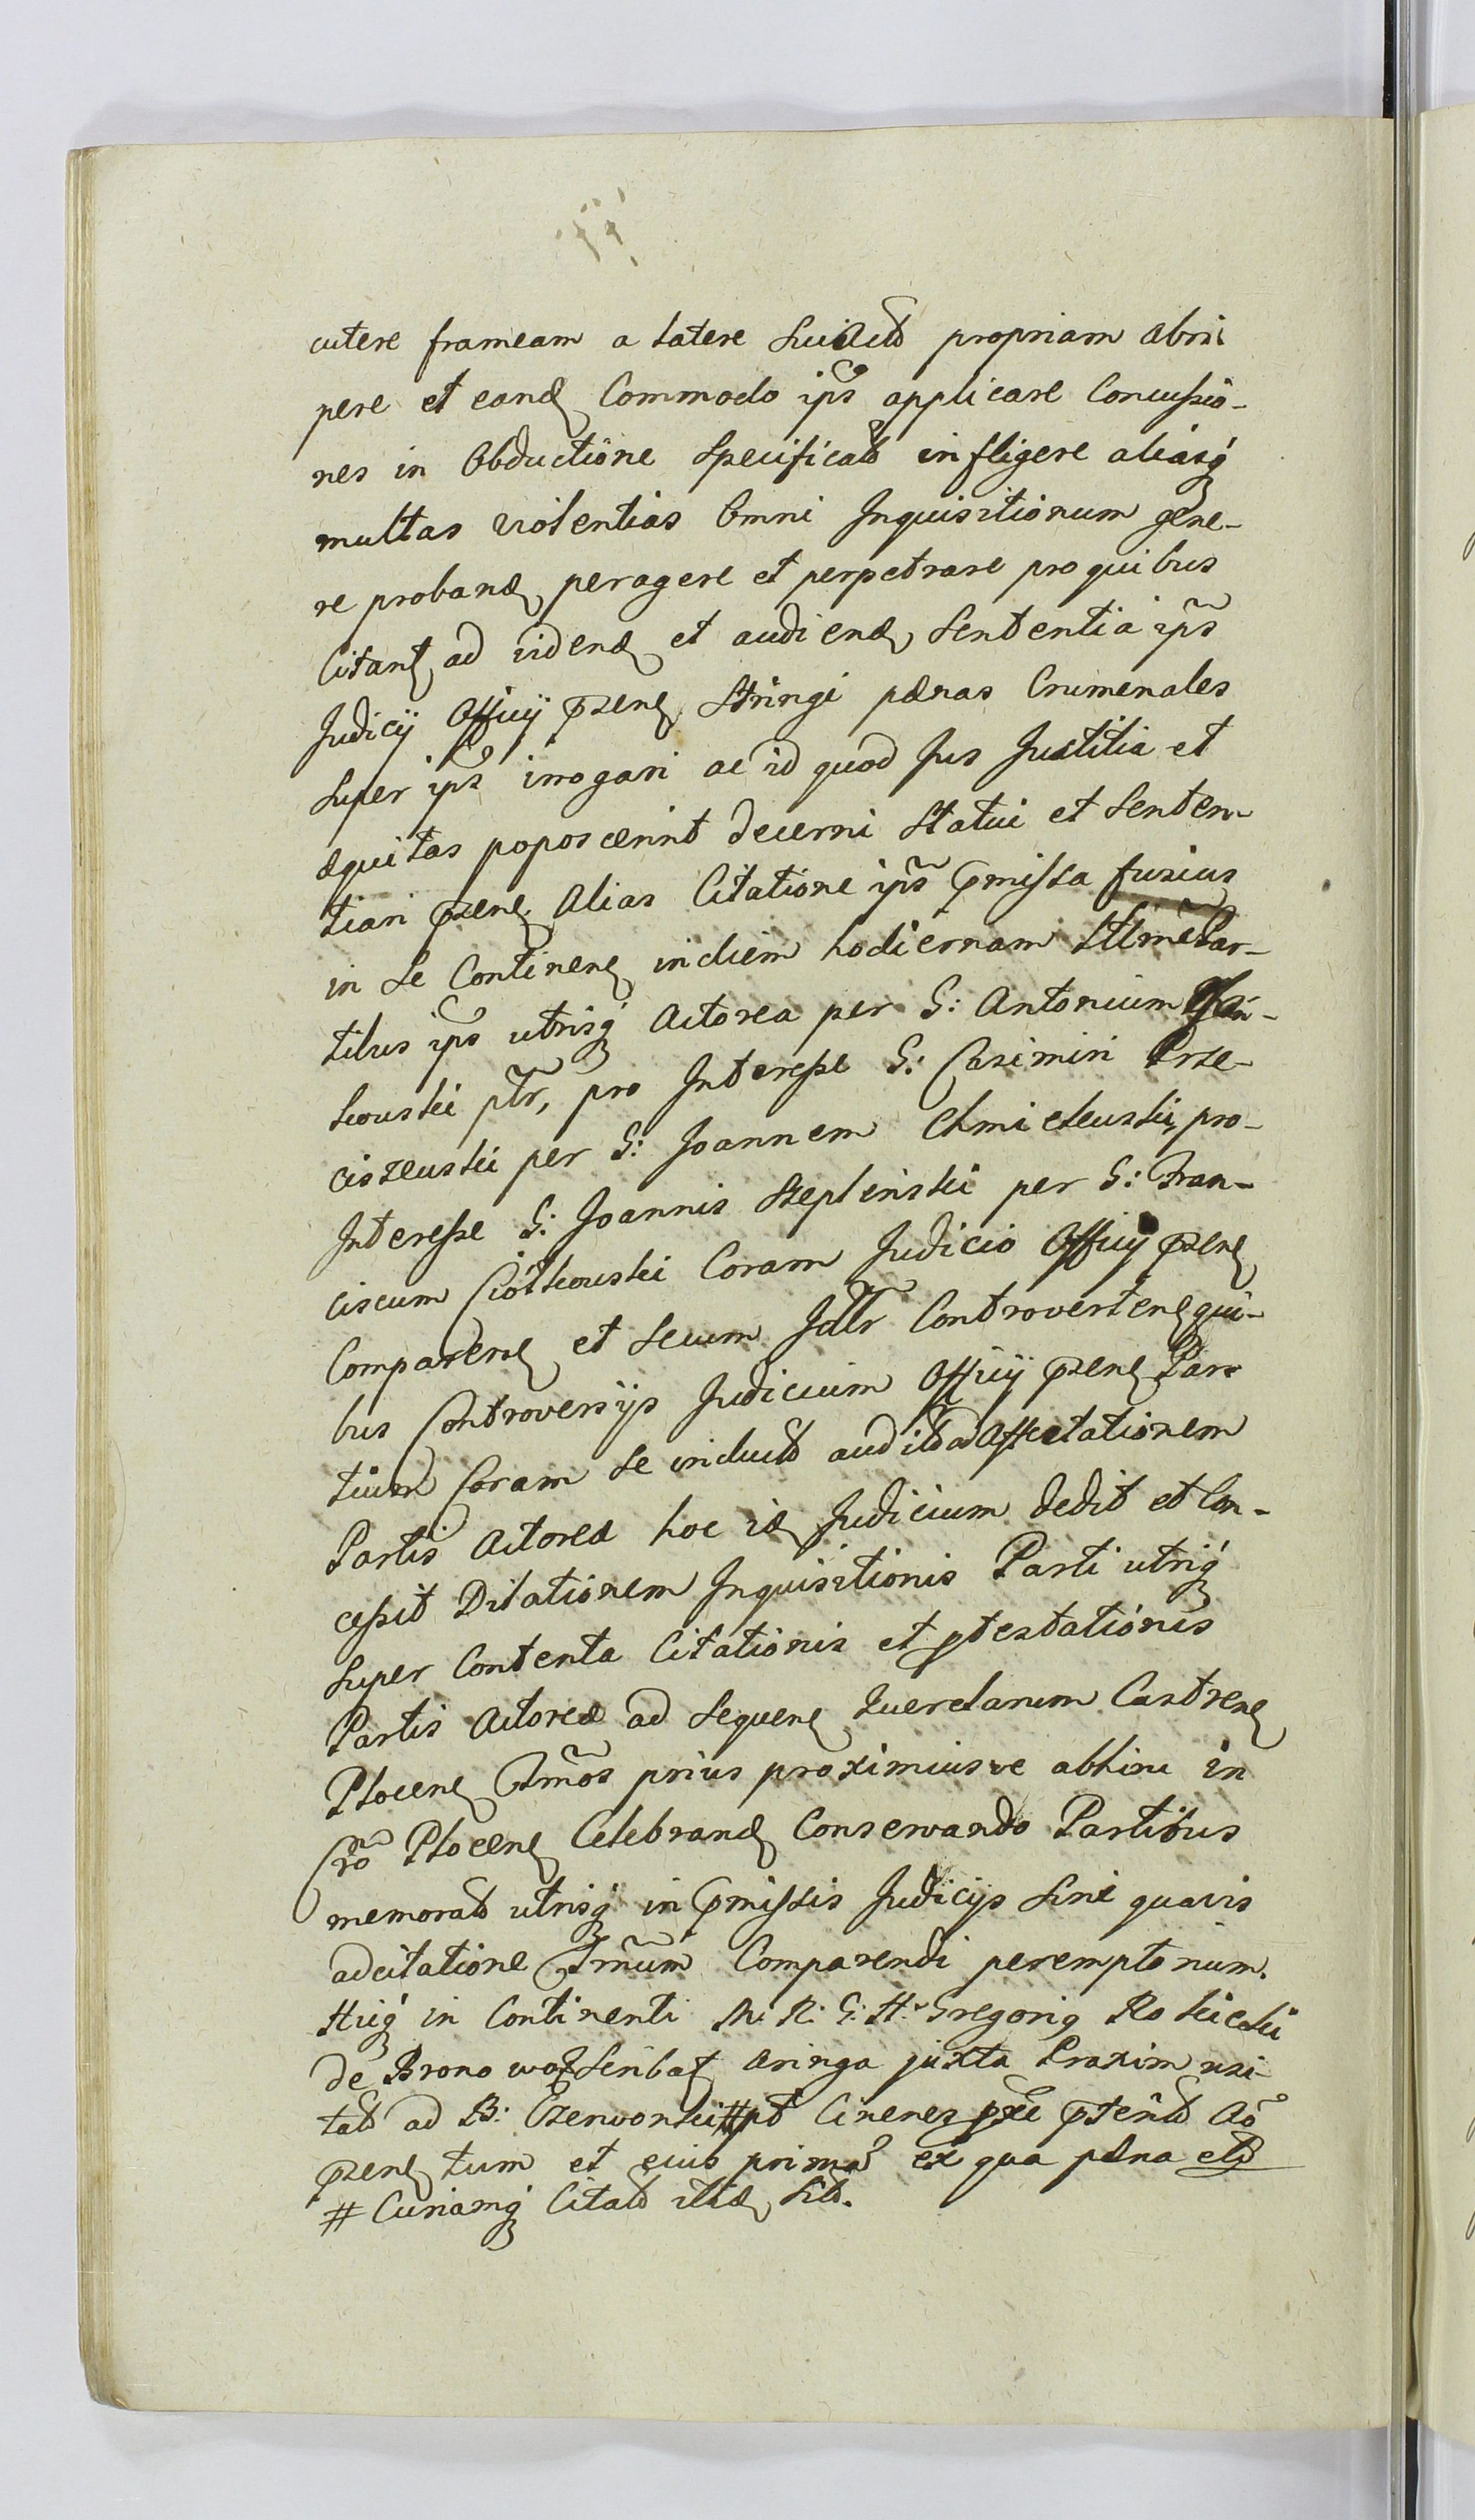 cutere frameam a latere Sui Actis propriam abri
pere et eand Commodo ips applicare Concussio-
nes in Obductione Specificats infligere aliasq
multas violentias Omni Inquisitionum gene-
re proband peragere et perpetrare pro quibus
Citant ad vidend et audiend Sententia ips
Judicij Officij przens Stringi pænas Crumenales
Super ips irrogari ac id quod Jus Justitia et
æquitas poposcerint decerni Statui et Senten
tiari przens Alias Citatione ips pmissa fusius
in Se Continens in diem hodiernam Par-
tibus ips utrisq Actorea per G: Antonium
kowski ptr, pro Interesse G: Casimiri Prze-
ciszewski per G: Joannem Chmielewski, pro
Interesse G: Joannis Steplinski per G: Fran-
ciscum Ciółkowski Coram Judicio Officij przens
Comparens et Secum Controvertens qui-
bus Controversijs Judicium Officij przens Par
tium Coram Se induct audits ad Affectationem
Partis Actoreæ hoc id Judicium dedit et Con-
cessit Dilationem Inquisitionis Parti utriq
Super Contenta Citationis et ptestationis
Partis Actoreæ ad Sequens Querelarum Castrens
Plocens Trmos prius proximiusve abhinc in
Cro Plocens Celebrand Conservando Partibus
memorats utrisq in pmissis Judicijs Sine quavis
adcitatione Trnum Comparendi peremptorium.
Hicq in Continenti M. R. G. H. Gregorig Rościcki
de Bronowo Scribat Aringa juxta Praxim usi-
tats ad B: Czerwonki # pt Cirenes ptents Ao
przens tum et eius prima ex qua pæna
# Curiamq Citats